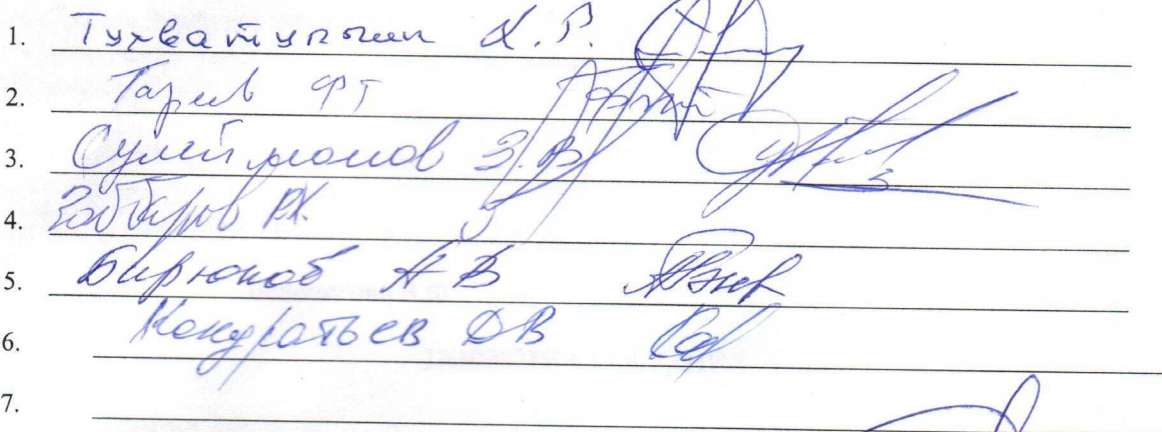 1. Тухватуллин Х.Г.
2. Гарeев ФТ
3. Сулейманов З.В.
4. РХ.
5. Бирюков А В
6. Кондратьев ДВ
7.